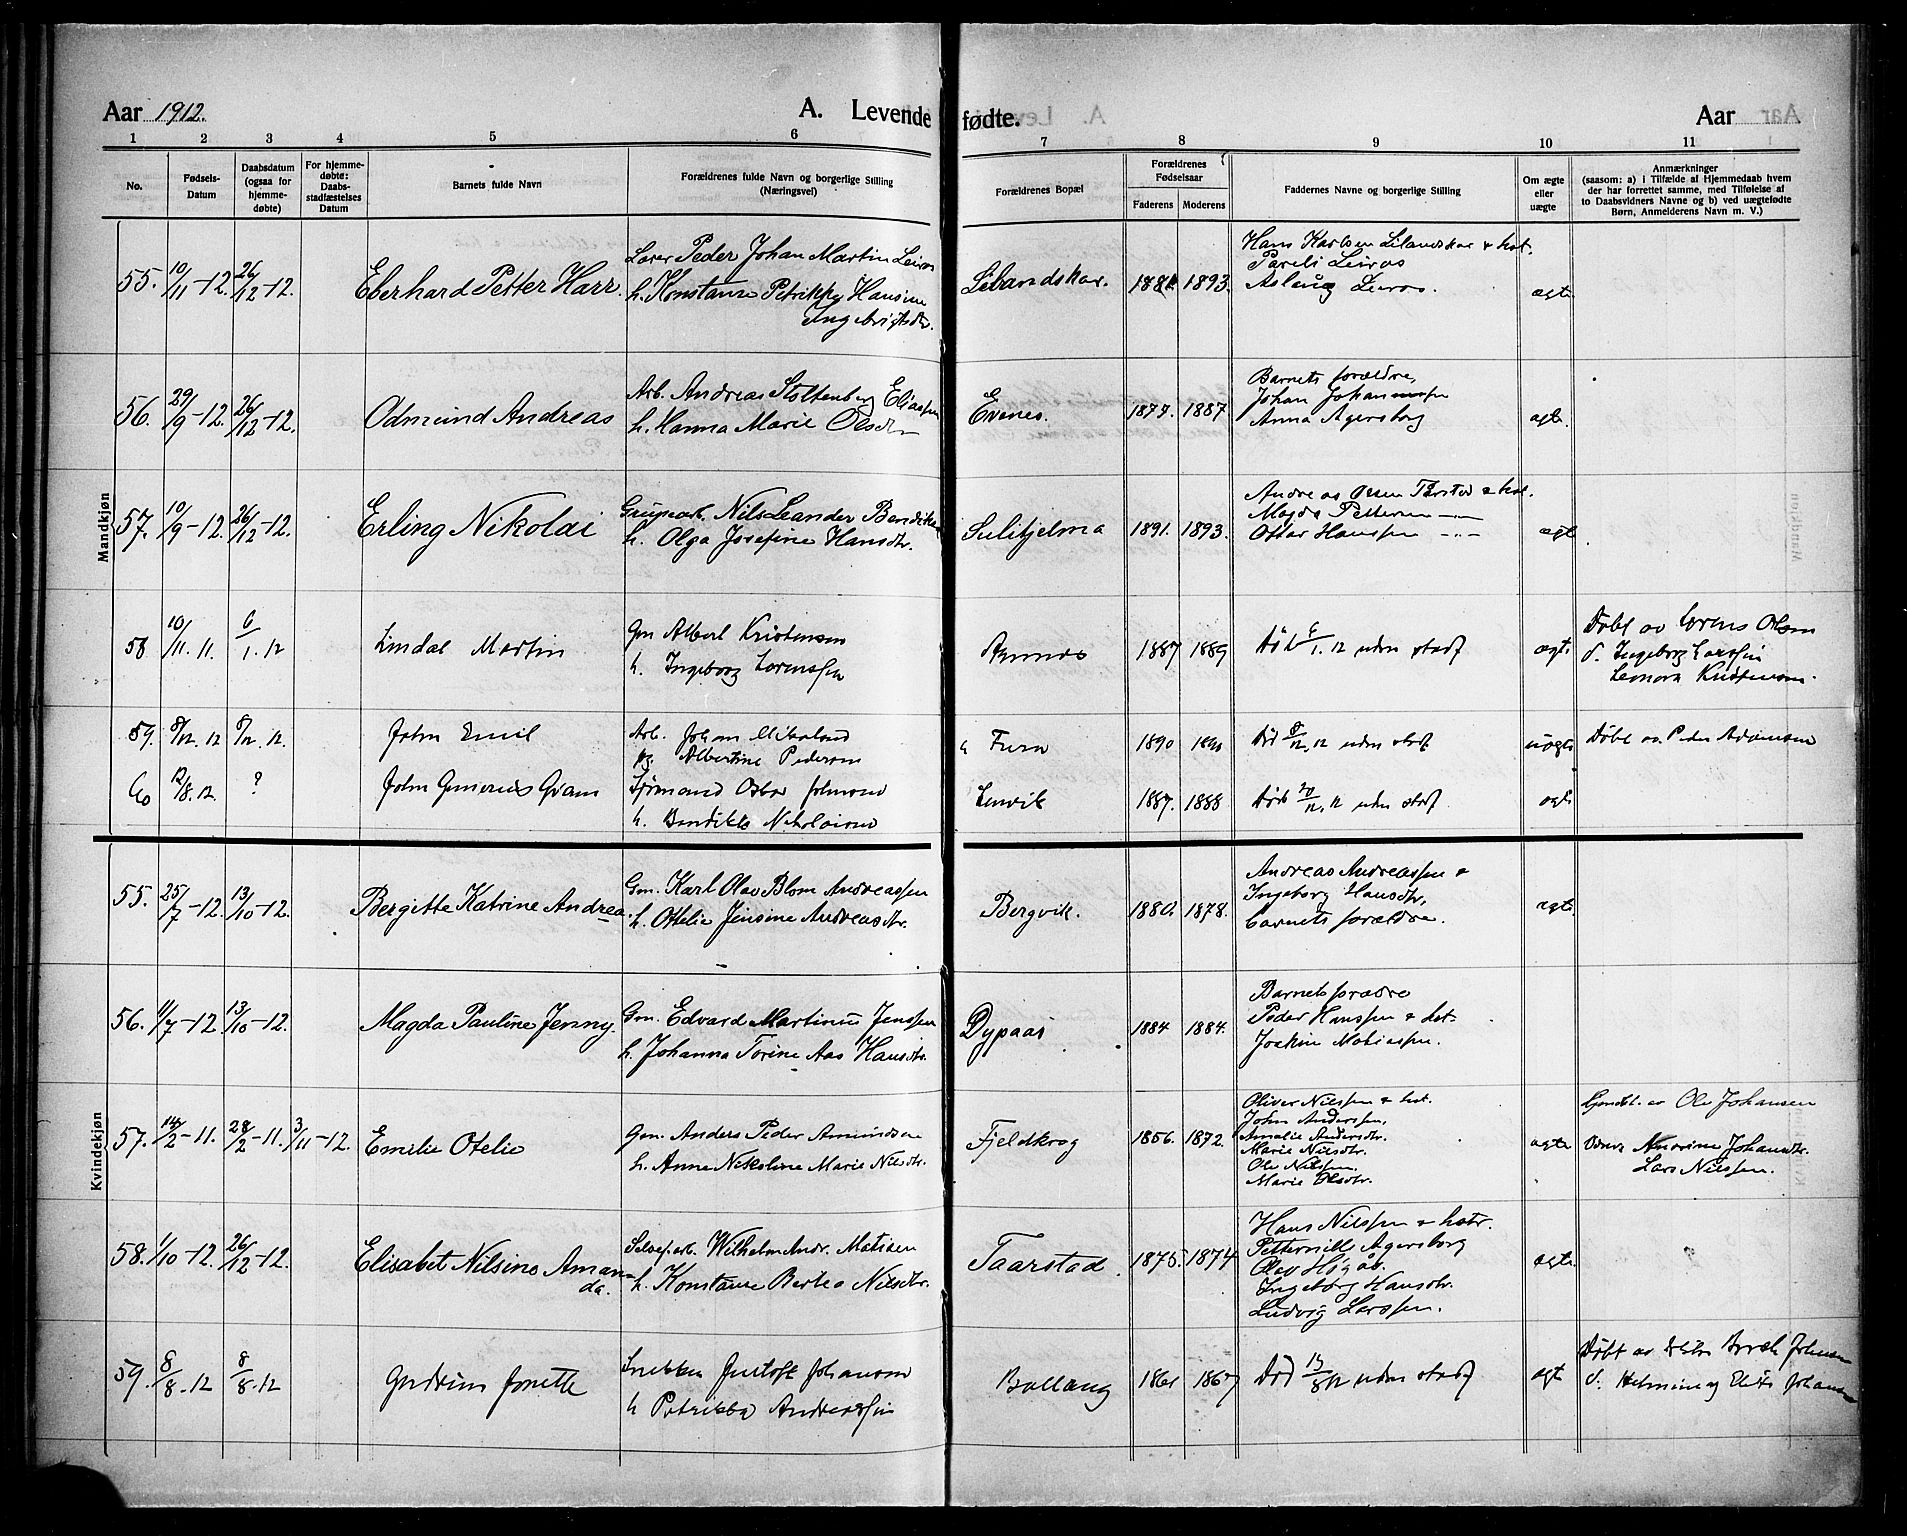 Aar 1912.
A. Levende fødte.
Aar
1 2 3 4 5 6 7 8 9 10 11
No.
Fødsels-
Datum
Daabsdatum
(ogsaa for
hjemme-
døbte)
For hjemme-
døbte:
Daabs-
stadfæstelses
Datum
Barnets fulde Navn
Forældrenes fulde Navn og borgerlige Stilling
(Næringsvei)
Forældrenes Bopæl
Forældrenes
Fødselsaar
Faderens Moderens
Faddernes Navne og borgerlige Stilling
Om ægte
eller
uægte
Anmærkninger
(saasom: a) i Tilfælde af Hjemmedaab hvem
der har forrettet samme, med Tilføielse af
to Daabsvidners Navne og b) ved uægtefødte
Børn, Anmelderens Navn m. V.)
Mandkjøn
55. 10/11-12. 26/12-12. Eberhard Petter Harr
Lærer Peder Johan Martin Leiros
h. Konstanse Petrikke Hansine
Ingebrigtsdtr.
1893.
Hans Karlsen Lilandskar & hst.
Pareli Leiros
Aslaug Leiros.
ægte
56. 29/9-12. 26/12-12. Odmund Andreas
Arb. Andreas Stoltenberg Eliassen
h. Hanna Marie Olsdtr
Evenes. 1877. 1887
Barnets forældre,
Johan Johannessen
Anna Agersborg
ægte.
57. 10/9-12. 26/12-12. Erling Nikolai
Grubearb. Nils Leander Bendiksen
h. Olga Josefine Hansdtr.
Sulitjelma 1891. 1893.
Andreas Olsen Tårstad & hst.
Magda Pettersen -"-
Ottar Hanssen -"-
ægte
58 10/11. 11. 6/1. 12 Lindal Martin
Gm Albert Kristensen
h. Ingeborg Lorenssen
1887 1889
Død 6/1. 12 uden stadf
ægte
Døbt av Lorens Olsen
v. Ingeborg Larssen
Leonora Kristensen.
59. 8/12. 12 8/12. 12. John Emil
Arb. Johan
pg. Albertine Pedersen
1890
Død 8/12. 12 uden stadf
uægte
Døbt av Peder Adamsen
60 12/8. 12. ? John
Oskar Johnsen
h. Bendikte Nikolaisen
Lenvik 1887. 1888
Død 20/12. 12 uden stadf
ægte
Kvindekjøn
55. 25/7-12. 13/10-12. Bergitte Katrine Andrea
Gm. Karl Olav Blom Andreassen
h. Otelie Jensine Andreasdtr.
Bergvik. 1880. 1878.
Andreas Andreassen &
Ingeborg Hansdtr,
barnets forældre.
ægte
56. 11/7-12. 13/10-12. Magda Pauline Jenny.
Gm. Edvard Martinus Jenssen
h. Johanna Torine Aas Hansdtr.
Dypaas 1884 1884.
Barnets forældre
Peder Hanssen & hst.
Joakim Matiassen.
57. 14/2-11. 28/2-11. 3/11-12. Emilie Otelie
Gm. Anders Peder Amundsen
h. Anne Nikoline Marie Nilsdtr.
Fjeldkrog 1856. 1872.
Oliver Nilssen & hst.
John Anderssen,
Amalie Andersdtr.
Marie Nilsdtr.
Ole Nilssen.
Marie Olsdtr.
ægte
Hjemdbt. av Ole Johansen
Johansdtr.
Lars Nilssen.
58. 1/10-12. 26/12-12. Elisabet Nilsine Aman-
da.
Selveierarb. Wilhelm Andr. Matisen
h. Konstanse Bertea Nilsdtr.
Taarstad 1875. 1874
Hans Nilssen & hstr.
Petternille Agersborg
Olav
Ingeborg Hansdtr.
Ludvig Larssen.
ægte.
59. 8/8. 12 8/8. 12 Gudrun Jonette
Snekker Justoft Johansen
h Petrikke Anderssen
Ballang 1861 1867
Død 13/8 12 uden stadf
ægt
Døbt av